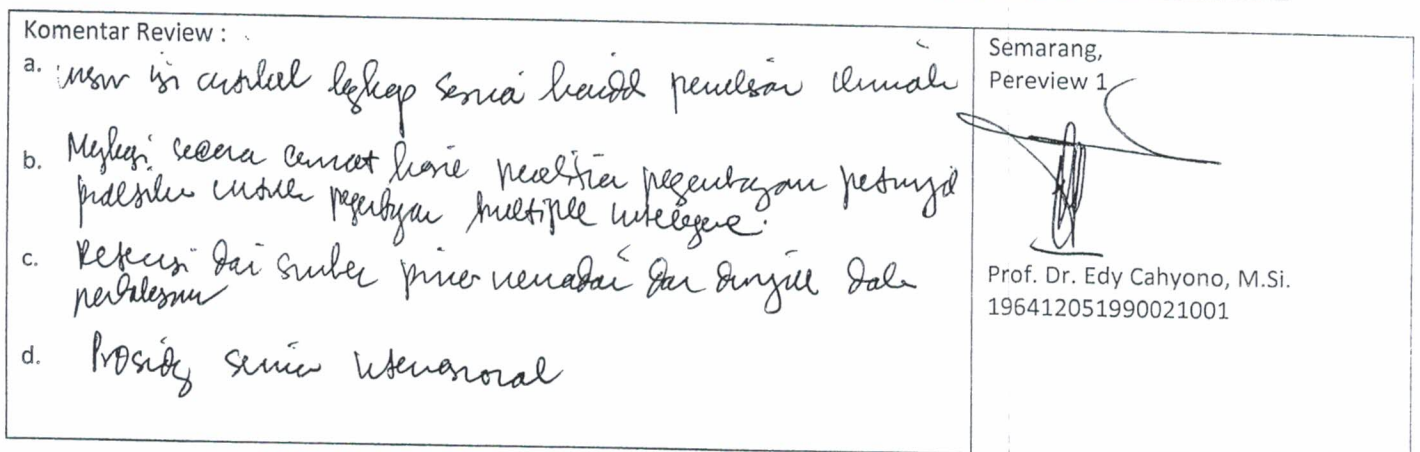 Komentar Review :
a. unsur isi artikel lengkap sesuai kaidah penelitian ilmiah
b. secara cermat hasil penelitian pengembangan petunjuk
praktikum untuk pengembangan multiple intelegence.
c. Referensi dari sumber primer memadai dan dirujuk dalam
pembahasan
d. Prosiding seminar internasional
Semarang,
Pereview 1
Prof. Dr. Edy Cahyono, M.Si.
196412051990021001